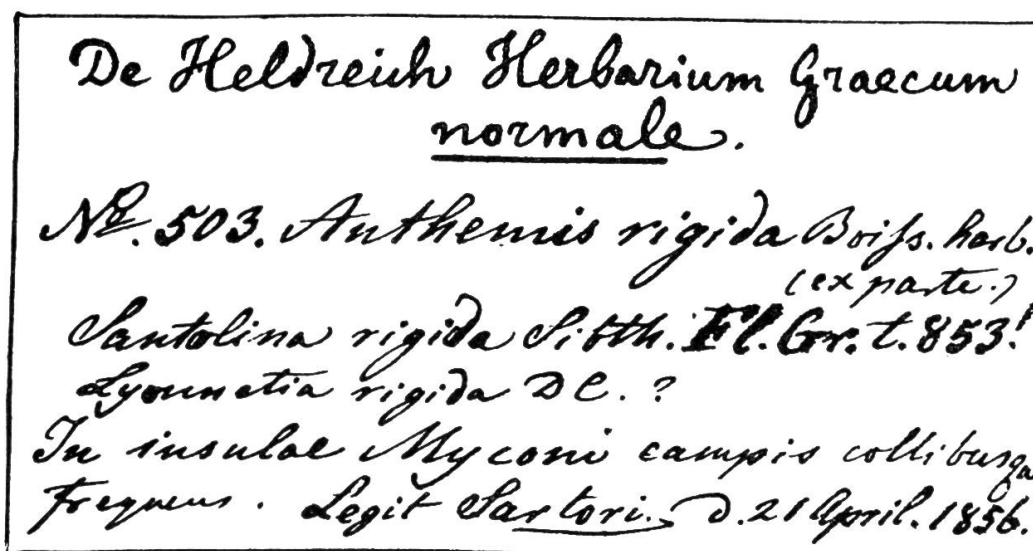 De Heldreich Herbarium Graecum
normale.
No. 503. Anthemis rigida Boiss. herb.
(ex parte.)
Santolina rigida Sibth. Fl. Gr. t. 853!
Lyonnetia rigida DC. ?
In insulae Myconi campis collibusq
frequens. Legit Sartori. d. 21 April. 1856.